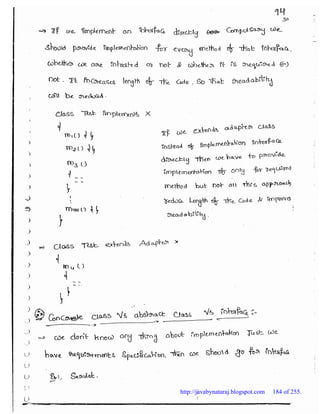 94
→ If we implement an interface directly Compulsary we
should provide implementation for every method of that interface,
whether we are intrested or not & whether it is required or
not. It increases length of the Code, So that readability
will be reduced.
class Test implements X
{
m1() {}
m2() {}
m3()
{
---
}
m1000() {}
}
If we extends adapter class
instead of implementation interface
directly then we have to provide
implementation of only for required
method but not all this approach
reduces Length of the Code & improves
readability.
⇒ class Test extends Adapter X
{
m4()
{
---
}
}
Concrete class Vs abstract class Vs interface :-
→ we don't know any thing about implementation Just we
have requirements specification, then we should go for interface
Ex: Servlet.
http://javabynataraj.blogspot.com 184 of 255.